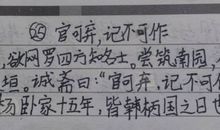 65 官可弃,记不可作
欲网罗四方知名士。尝筑南园,
垣。诚斋曰:“官可弃,记不可
卧家十五年,皆韩柄国之日也